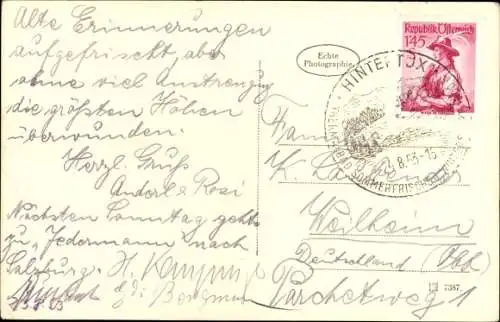 Alte Erinnerungen
aufgefrischt, aber
ohne viel Anstrengung
die größten Höhen
überwunden.
Herzl. Gruß
Anderl & Rosi
Nächsten Sonntag geht's
zu "Jedermann" nach
Salzburg.
Echte
Photographie
Republik Österreich
1'45
HINTERTUX
SOMMERFRISCHE
8.53-15
Fam
K.
Weilheim
Deutschland (Obb)
Parchetweg 1
7387